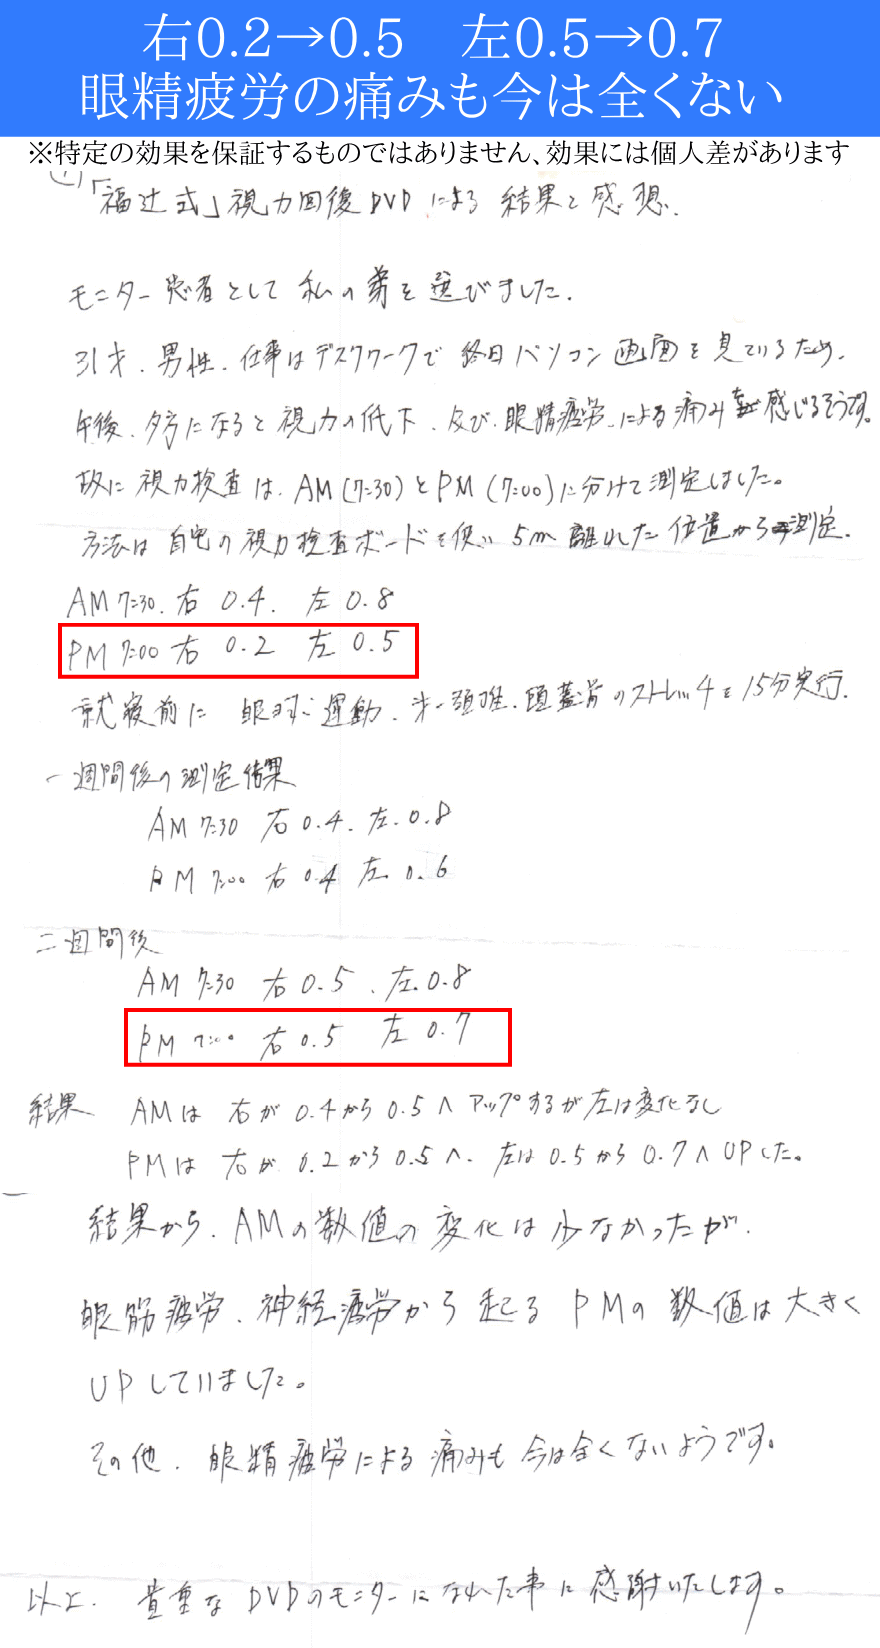 右0.2→0.5　左0.5→0.7
眼精疲労の痛みも今は全くない
※特定の効果を保証するものではありません、効果には個人差があります
(1)「福辻式」視力回復DVDによる結果と感想.
モニター患者として私の弟を選びました.
31才.男性.仕事はデスクワークで終日パソコン画面を見ているため.
午後.夕方になると視力の低下.及び.眼精疲労による痛みを感じるそうです。
故に視力検査は.AM(7:30)とPM(7:00)に分けて測定しました。
方法は自宅の視力検査ボードを使い5m離れた位置から測定.
AM7:30.右0.4. 左0.8
PM7:00右 0.2 左0.5
就寝前に 眼球運動.第一頚椎.頭蓋骨のストレッチを15分実行.
一週間後の測定結果
AM7:30 右0.4.左.0.8
PM7:00 右0.4 左.0.6
二週間後
AM7:30 右0.5.左.0.8
PM7:00 右0.5 左0.7
結果 AMは右が0.4から0.5へアップするが左は変化なし
PMは右が0.2から0.5へ.左は0.5から0.7へUPした。
結果から.AMの数値の変化は少なかったが.
眼筋疲労.神経疲労から起るPMの数値は大きく
UPしていました。
その他.眼精疲労による痛みも今は全くないようです。
以上.貴重なDVDのモニターになれた事に感謝いたします。